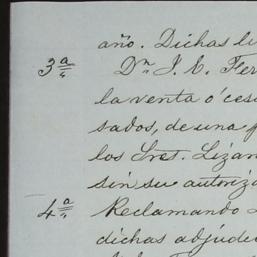 año. Dichas
3ª Dⁿ J. C. Fer
la venta ó ces
sados, de una
los Sres. Lizan
sin su autoriz
4ª Reclamando
dichas adjude